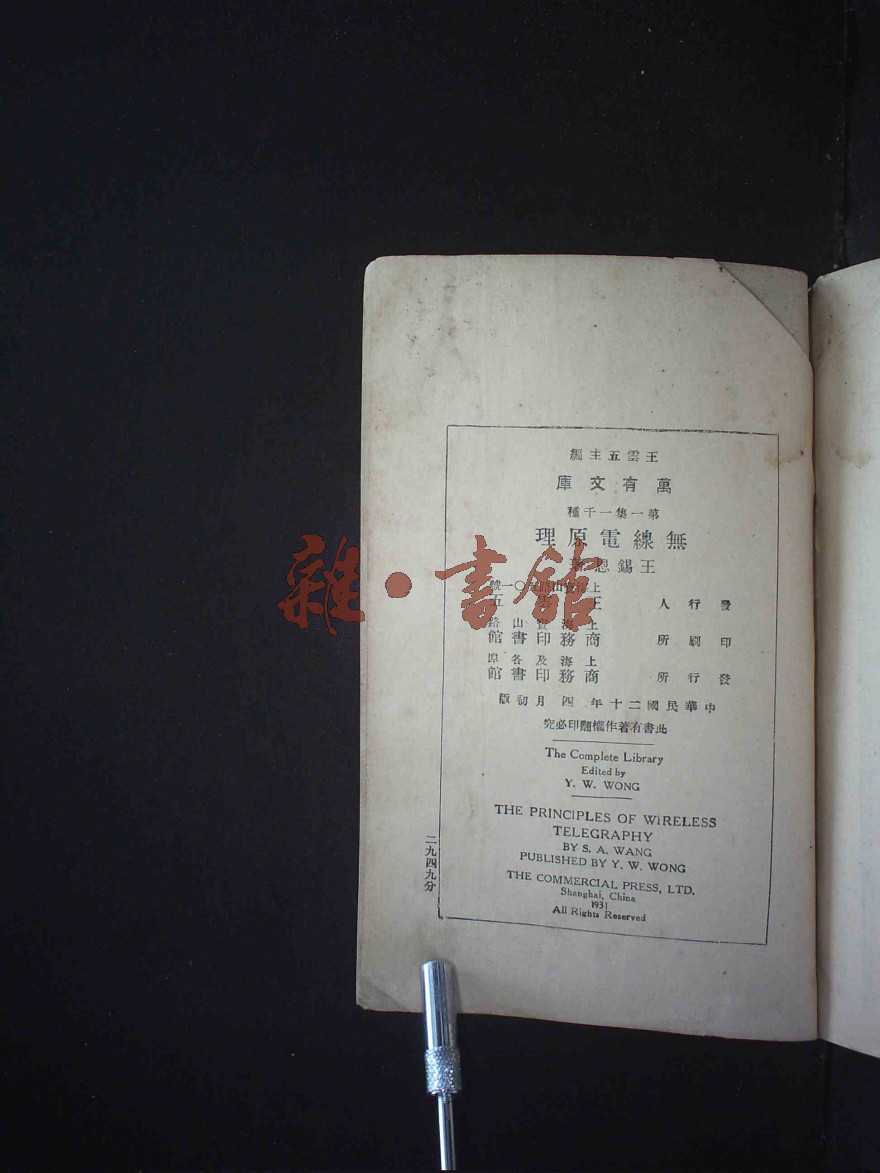 王雲五主編
萬有文庫
第一集一千種
無線電原理
王錫恩著
上海寶山路五〇一號
發行人 王雲五
上海寶山路
印刷所 商務印書館
上海及各埠
發行所 商務印書館
中華民國二十年四月初版
此書有著作權翻印必究
The Complete Library
Edited by
Y. W. WONG
THE PRINCIPLES OF WIRELESS
TELEGRAPHY
BY S. A. WANG
PUBLISHED BY Y. W. WONG
THE COMMERCIAL PRESS, LTD.
Shanghai, China
1931
All Rights Reserved
二九四九分
雜·書館